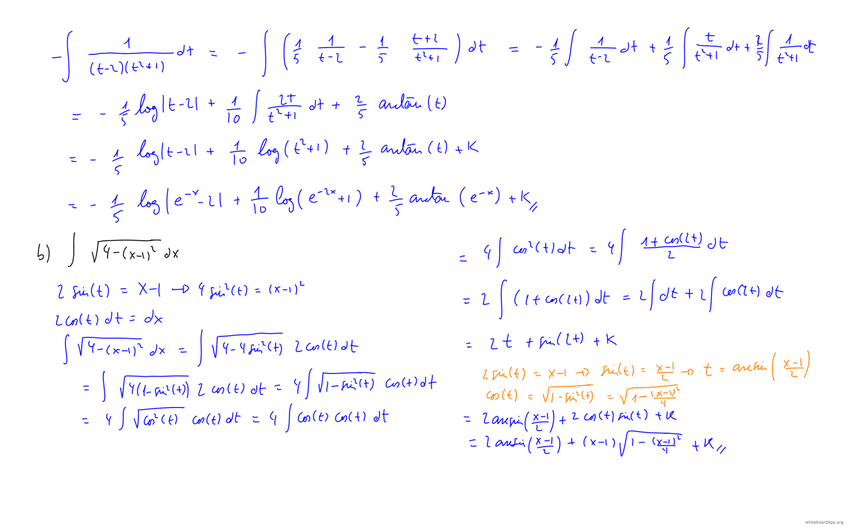 -∫ 1/((t-2)(t²+1)) dt = -∫ (1/5 1/(t-2) - 1/5 (t+2)/(t²+1)) dt = -1/5 ∫ 1/(t-2) dt + 1/5 ∫ t/(t²+1) dt + 2/5 ∫ 1/(t²+1) dt
= -1/5 log|t-2| + 1/10 ∫ 2t/(t²+1) dt + 2/5 arctan(t)
= -1/5 log|t-2| + 1/10 log(t²+1) + 2/5 arctan(t) + K
= -1/5 log|e^(-x)-2| + 1/10 log(e^(-2x)+1) + 2/5 arctan(e^(-x)) + K //
b) ∫ √(4-(x-1)²) dx
2 sin(t) = x-1 → 4 sin²(t) = (x-1)²
2 cos(t) dt = dx
∫ √(4-(x-1)²) dx = ∫ √(4-4 sin²(t)) 2 cos(t) dt
= ∫ √(4(1-sin²(t))) 2 cos(t) dt = 4 ∫ √(1-sin²(t)) cos(t) dt
= 4 ∫ √(cos²(t)) cos(t) dt = 4 ∫ cos(t) cos(t) dt
= 4 ∫ cos²(t) dt = 4 ∫ (1+cos(2t))/2 dt
= 2 ∫ (1+cos(2t)) dt = 2 ∫ dt + 2 ∫ cos(2t) dt
= 2t + sin(2t) + K
2 sin(t) = x-1 → sin(t) = (x-1)/2 → t = arcsin((x-1)/2)
cos(t) = √(1-sin²(t)) = √(1-(x-1)²/4)
= 2 arcsin((x-1)/2) + 2 cos(t) sin(t) + K
= 2 arcsin((x-1)/2) + (x-1) √(1-(x-1)²/4) + K //
whiteboardapp.org